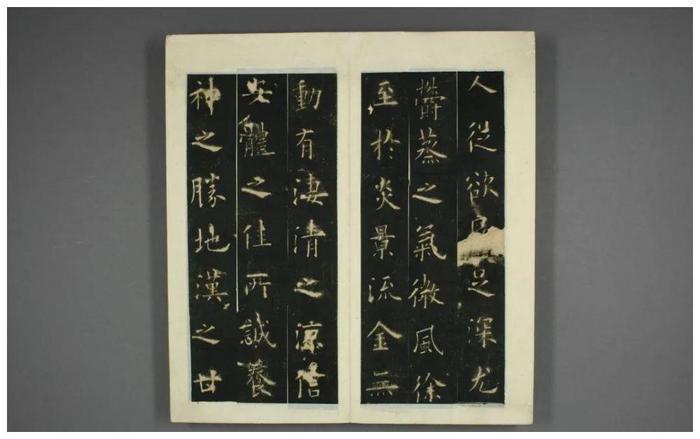 人從欲足深尤
欝蒸之氣微風徐
至於炎景流金無
動有淒清之涼信
安體之佳所誠養
神之勝地漢之甘